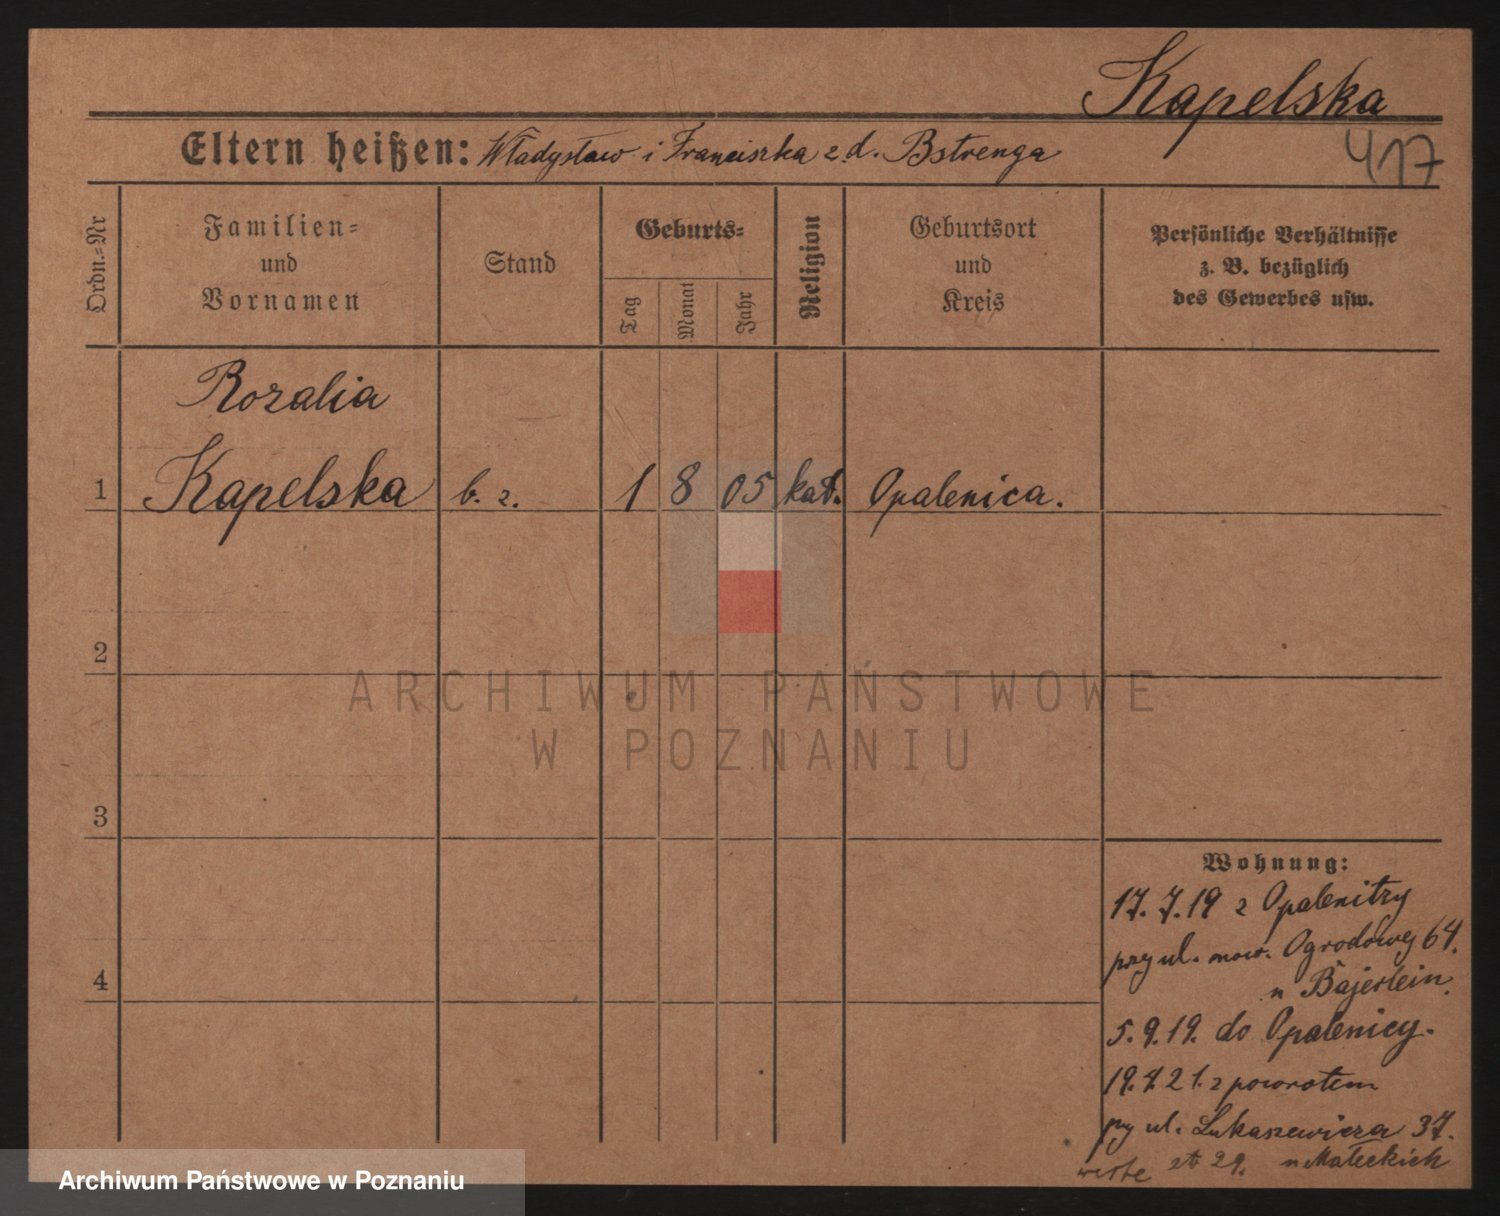 Kapelska
417
Eltern heißen: Władysław i Franciszka z d. Bstrenga
Ordn.-Nr
Familien-
und
Vornamen
Stand
Geburts-
Tag
Monat
Jahr
Religion
Geburtsort
und
Kreis
Persönliche Verhältnisse
z. B. bezüglich
des Gewerbes usw.
Rozalia
1 Kapelska b. z. 1 8 05 kat. Opalenica.
2
3
4
ARCHIWUM PAŃSTWOWE
W POZNANIU
Wohnung:
17. 7. 19 z Opalenitzy
przy ul. now. Ogrodowej 64.
u Bajerlein.
5. 9. 19. do Opalenicy.
19. 4. 21. z powrotem
przy ul. Łukaszewicza 37.
29. u Małeckich
Archiwum Państwowe w Poznaniu